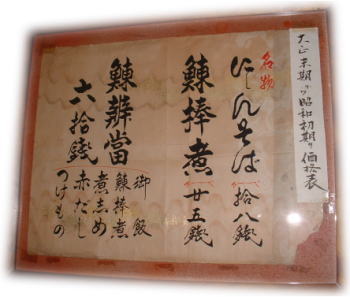 大正末期か昭和初期の価格表
名物
にしんそば 拾八銭
鰊棒煮 廿五銭
鰊辨當 六拾銭
御飯
鰊棒煮
煮しめ
赤だし
つけもの